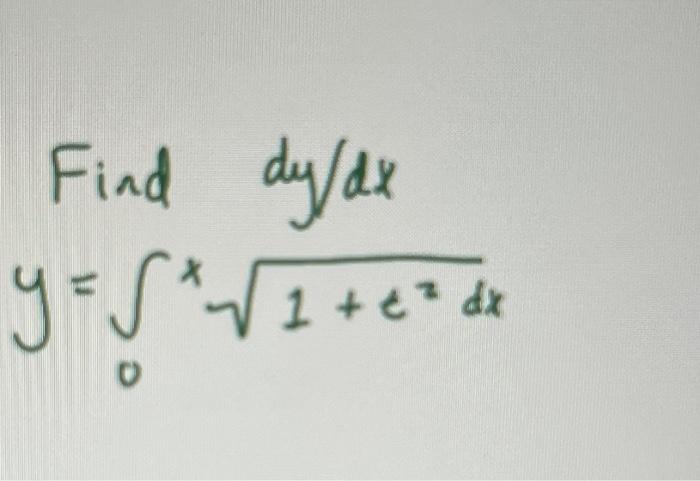 Find dy/dx
y = ∫₀ˣ √1 + t² dx